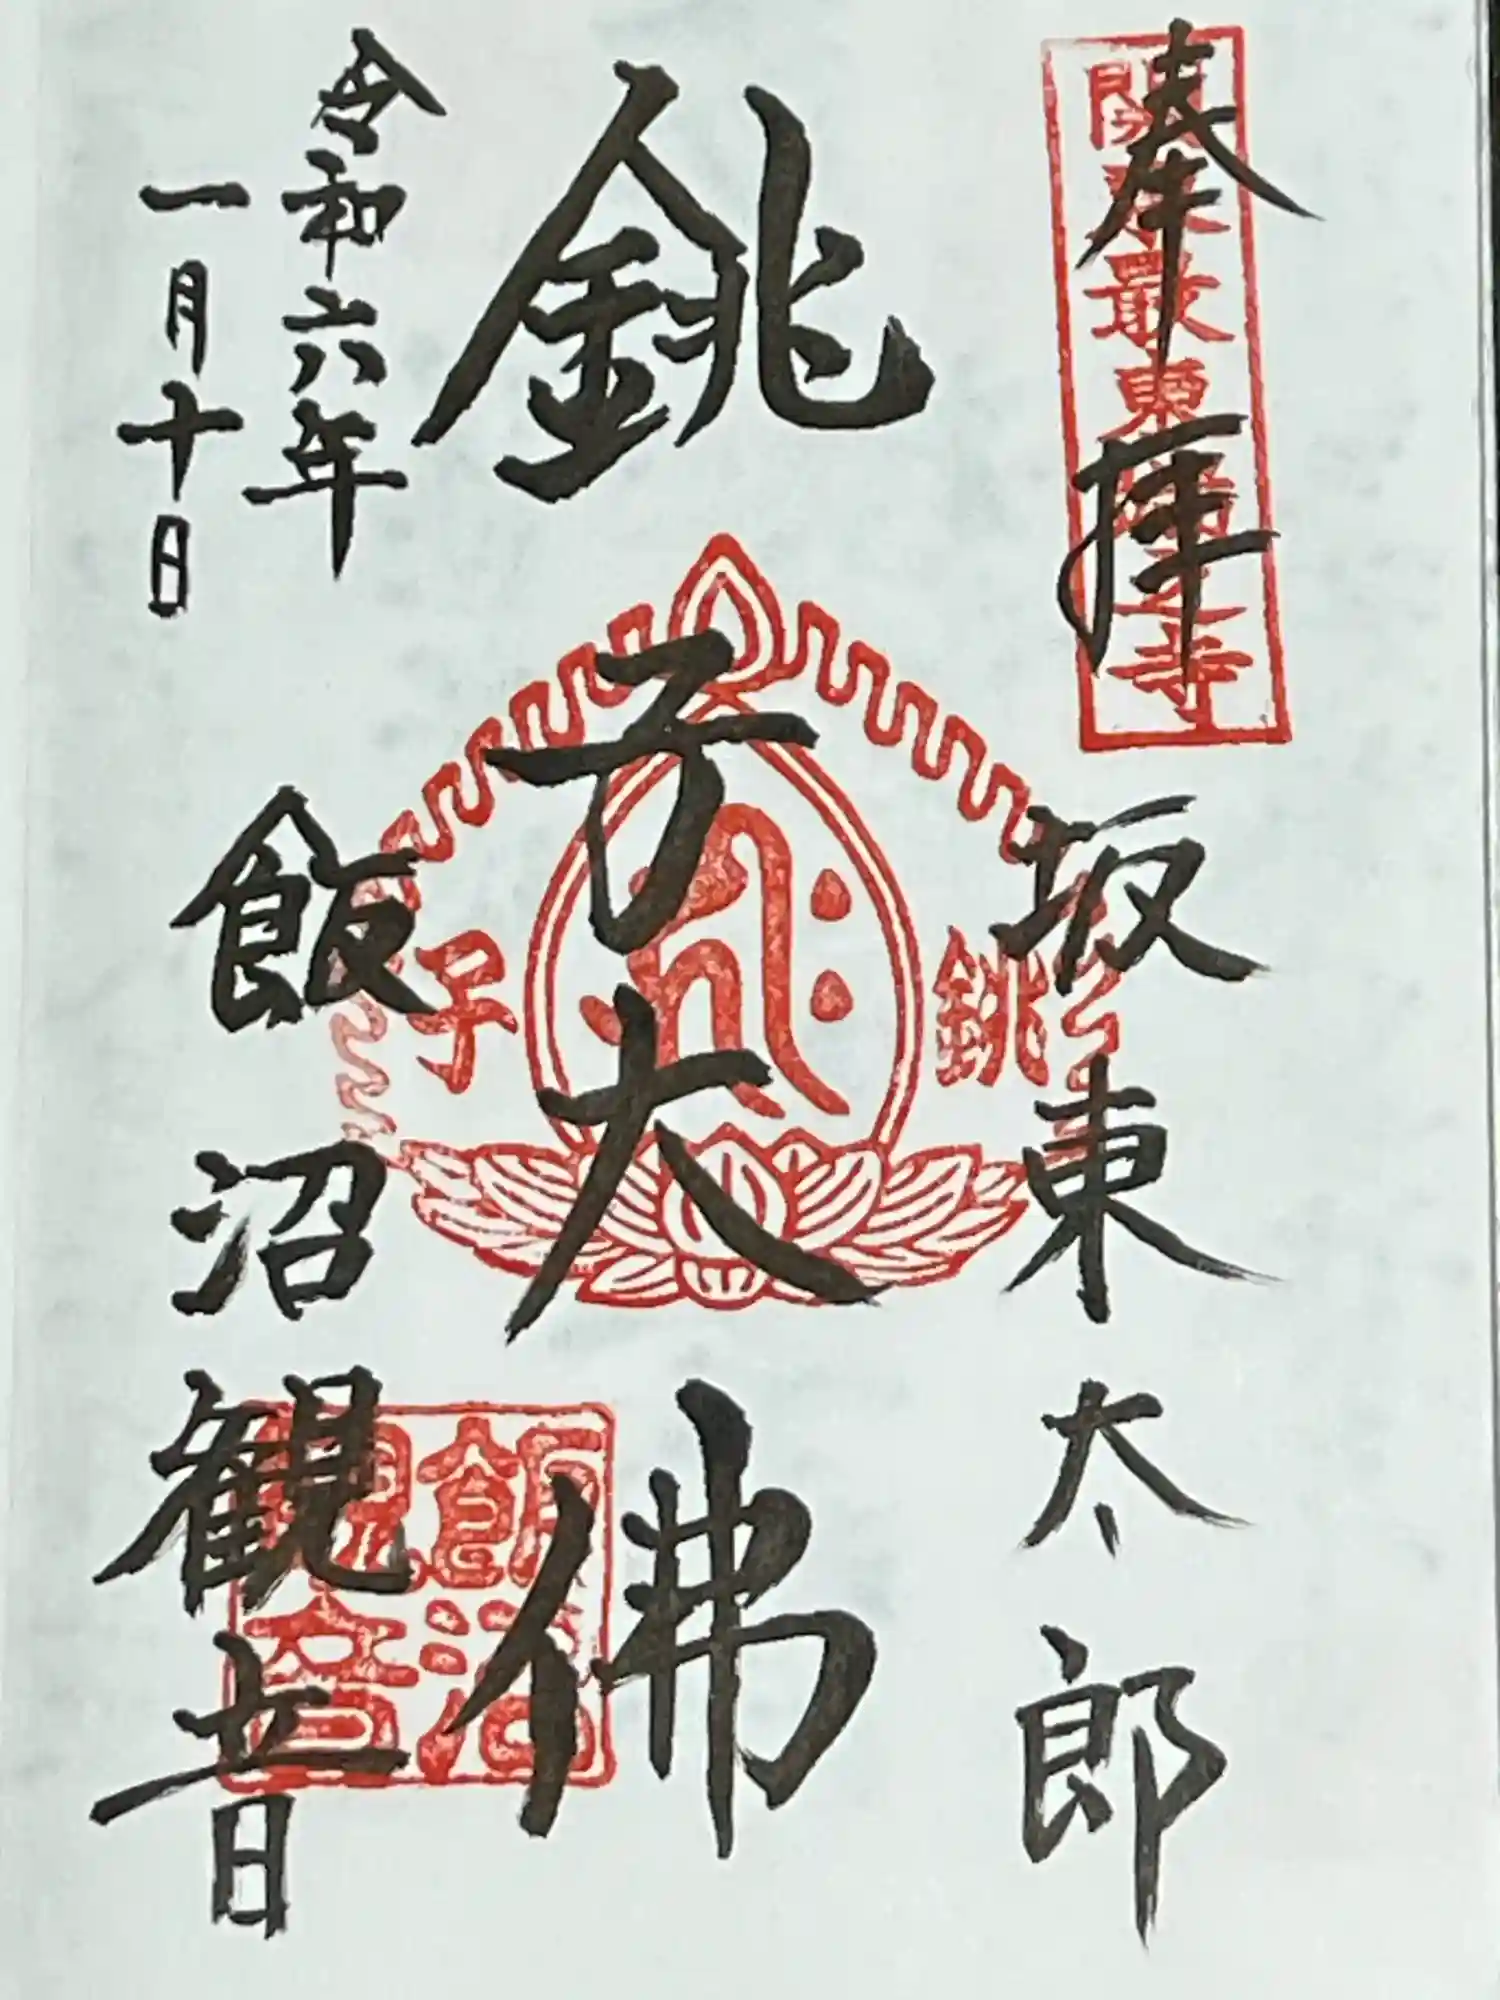 奉拝
坂東太郎
銚子大佛
令和六年
一月十日
飯沼観音
関東最東端之寺
銚子
飯沼
観音